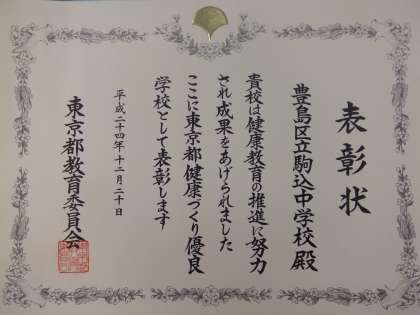 表彰状
豊島区立駒込中学校殿
貴校は健康教育の推進に努力
され成果をあげられました
ここに東京都健康づくり優良
学校として表彰します
平成二十四年十二月二十日
東京都教育委員会